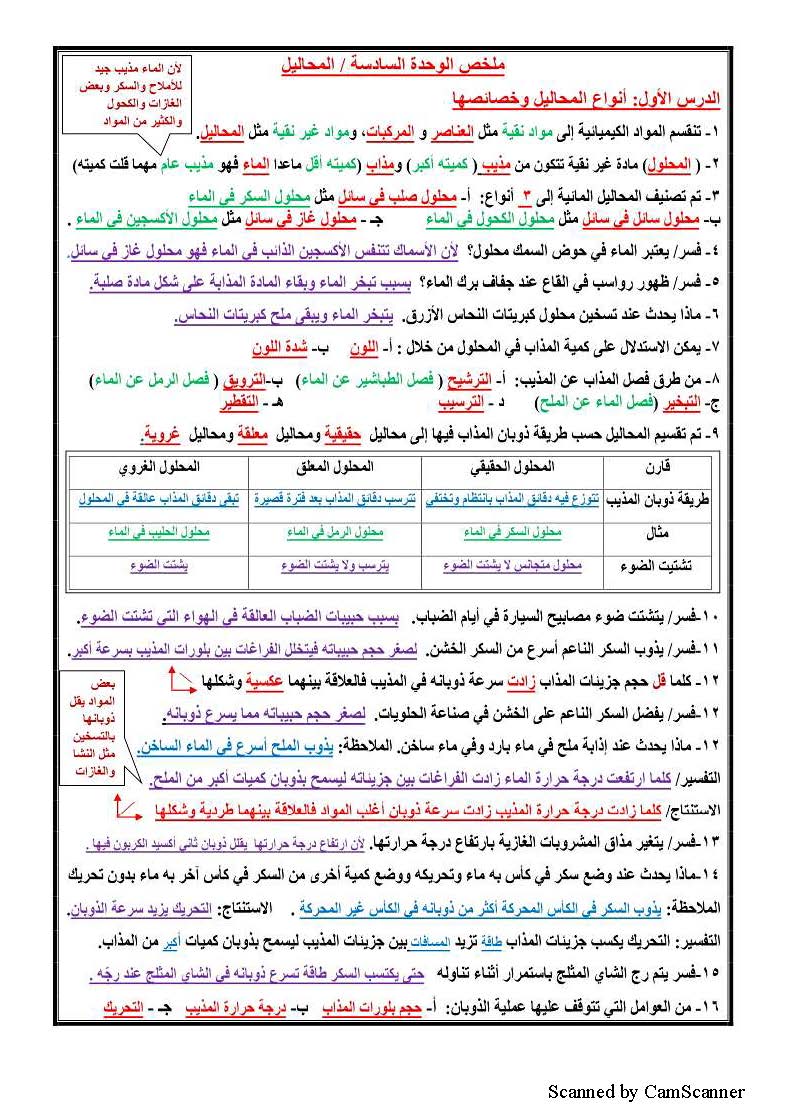 ملخص الوحدة السادسة / المحاليل
لأن الماء مذيب جيد
للأملاح والسكر وبعض
الغازات والكحول
والكثير من المواد
الدرس الأول: أنواع المحاليل وخصائصها
١- تنقسم المواد الكيميائية إلى مواد نقية مثل العناصر و المركبات، ومواد غير نقية مثل المحاليل.
٢- ( المحلول) مادة غير نقية تتكون من مذيب ( كميته أكبر) ومذاب (كميته أقل ماعدا الماء فهو مذيب عام مهما قلت كميته)
٣- تم تصنيف المحاليل المائية إلى ٣ أنواع: أ- محلول صلب في سائل مثل محلول السكر في الماء
ب- محلول سائل في سائل مثل محلول الكحول في الماء جـ - محلول غاز في سائل مثل محلول الأكسجين في الماء .
٤- فسر/ يعتبر الماء في حوض السمك محلول؟ لأن الأسماك تتنفس الأكسجين الذائب في الماء فهو محلول غاز في سائل.
٥- فسر/ ظهور رواسب في القاع عند جفاف برك الماء؟ بسبب تبخر الماء وبقاء المادة المذابة على شكل مادة صلبة.
٦- ماذا يحدث عند تسخين محلول كبريتات النحاس الأزرق. يتبخر الماء ويبقى ملح كبريتات النحاس.
٧- يمكن الاستدلال على كمية المذاب في المحلول من خلال : أ- اللون ب- شدة اللون
٨- من طرق فصل المذاب عن المذيب: أ- الترشيح ( فصل الطباشير عن الماء) ب-الترويق ( فصل الرمل عن الماء)
ج- التبخير (فصل الماء عن الملح) د - الترسيب هـ - التقطير
٩- تم تقسيم المحاليل حسب طريقة ذوبان المذاب فيها إلى محاليل حقيقية ومحاليل معلقة ومحاليل غروية.
قارن المحلول الحقيقي المحلول المعلق المحلول الغروي
طريقة ذوبان المذيب تتوزع فيه دقائق المذاب بانتظام وتختفي تترسب دقائق المذاب بعد فترة قصيرة تبقى دقائق المذاب عالقة في المحلول
مثال محلول السكر في الماء محلول الرمل في الماء محلول الحليب في الماء
تشتيت الضوء محلول متجانس لا يشتت الضوء يترسب ولا يشتت الضوء يشتت الضوء
١٠-فسر/ يتشتت ضوء مصابيح السيارة في أيام الضباب. بسبب حبيبات الضباب العالقة في الهواء التي تشتت الضوء.
١١-فسر/ يذوب السكر الناعم أسرع من السكر الخشن. لصغر حجم حبيباته فيتخلل الفراغات بين بلورات المذيب بسرعة أكبر.
١٢- كلما قل حجم جزيئات المذاب زادت سرعة ذوبانه في المذيب فالعلاقة بينهما عكسية وشكلها
١٢-فسر/ يفضل السكر الناعم على الخشن في صناعة الحلويات. لصغر حجم حبيباته مما يسرع ذوبانه.
١٢- ماذا يحدث عند إذابة ملح في ماء بارد وفي ماء ساخن. الملاحظة: يذوب الملح أسرع في الماء الساخن.
بعض
المواد يقل
ذوبانها
بالتسخين
مثل النشا
والغازات
التفسير/ كلما ارتفعت درجة حرارة الماء زادت الفراغات بين جزيئاته ليسمح بذوبان كميات أكبر من الملح.
الاستنتاج/ كلما زادت درجة حرارة المذيب زادت سرعة ذوبان أغلب المواد فالعلاقة بينهما طردية وشكلها
١٣-فسر/ يتغير مذاق المشروبات الغازية بارتفاع درجة حرارتها. لأن ارتفاع درجة حرارتها يقلل ذوبان ثاني أكسيد الكربون فيها .
١٤-ماذا يحدث عند وضع سكر في كأس به ماء وتحريكه ووضع كمية أخرى من السكر في كأس آخر به ماء بدون تحريك
الملاحظة: يذوب السكر في الكأس المحركة أكثر من ذوبانه في الكأس غير المحركة . الاستنتاج: التحريك يزيد سرعة الذوبان.
التفسير: التحريك يكسب جزيئات المذاب طاقة تزيد المسافات بين جزيئات المذيب ليسمح بذوبان كميات أكبر من المذاب.
١٥-فسر يتم رج الشاي المثلج باستمرار أثناء تناوله حتى يكتسب السكر طاقة تسرع ذوبانه في الشاي المثلج عند رجّه .
١٦- من العوامل التي تتوقف عليها عملية الذوبان: أ- حجم بلورات المذاب ب- درجة حرارة المذيب جـ - التحريك
Scanned by CamScanner